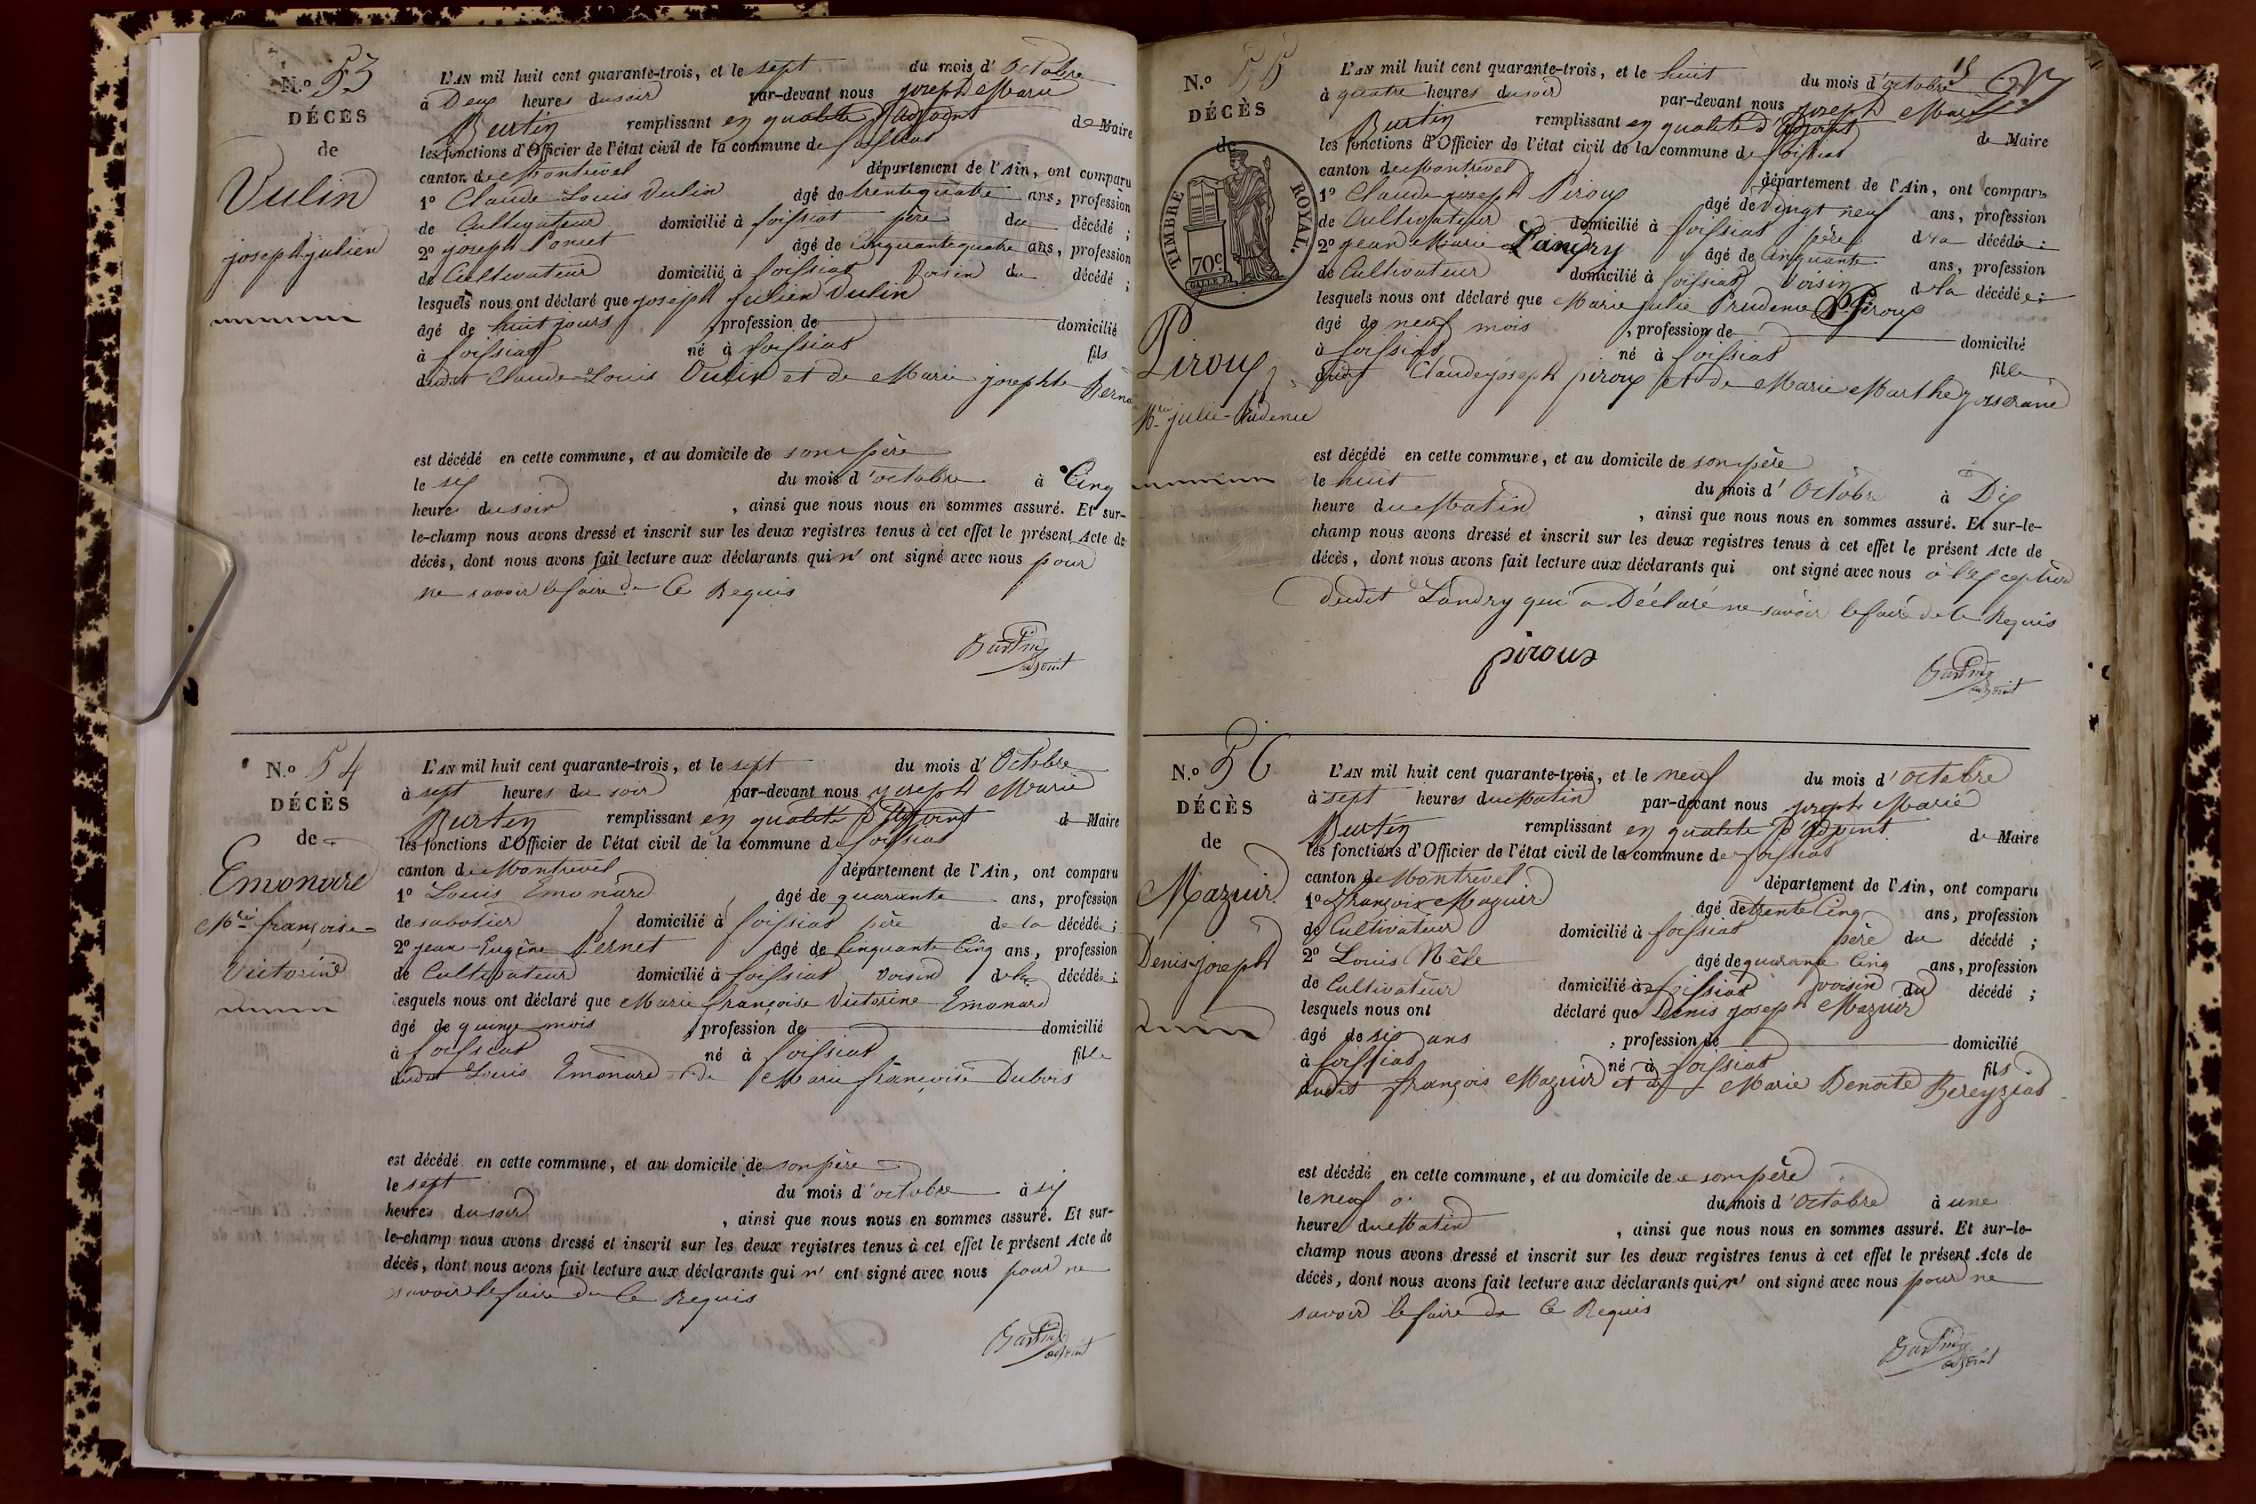 N.º 53
DÉCÈS
de
Vulin
joseph julien
L'AN mil huit cent quarante-trois, et le sept du mois d'Octobre
à Deux heures du soir par-devant nous joseph Marie
Burtin remplissant en qualité d'Adjoint de Maire
les fonctions d'Officier de l'état civil de la commune de foissiat
canton de Montrevel département de l'Ain, ont comparu
1º Claude Louis Vulin âgé de trente quatre ans, profession
de Cultivateur domicilié à foissiat père du décédé ;
2º joseph Poncet âgé de Cinquante quatre ans, profession
de Cultivateur domicilié à foissiat Voisin du décédé ;
lesquels nous ont déclaré que joseph julien Vulin
âgé de huit jours , profession de domicilié
à foissiat né à foissiat fils
dudit Claude Louis Vulin et de Marie josephte
est décédé en cette commune, et au domicile de son père
le six du mois d'octobre à Cinq
heures du soir , ainsi que nous nous en sommes assuré. Et sur-
le-champ nous avons dressé et inscrit sur les deux registres tenus à cet effet le présent Acte de
décès, dont nous avons fait lecture aux déclarants qui n' ont signé avec nous pour
ne savoir le faire de Ce Requis
Burtin
adjoint
N.º 54
DÉCÈS
de
Emonard
Mie françoise
Victorine
L'AN mil huit cent quarante-trois, et le sept du mois d'Octobre
à sept heures du soir par-devant nous joseph Marie
Burtin remplissant en qualité d'Adjoint de Maire
les fonctions d'Officier de l'état civil de la commune de foissiat
canton de Montrevel département de l'Ain, ont comparu
1º Louis Emonard âgé de quarante ans, profession
de sabotier domicilié à foissiat père de la décédée ;
2º jean-Eugène Pernet âgé de Cinquante Cinq ans, profession
de Cultivateur domicilié à foissiat voisin de la décédée ;
lesquels nous ont déclaré que Marie françoise Victorine Emonard
âgé de quinze mois , profession de domicilié
à foissiat né à foissiat fille
dudit Louis Emonard et de Marie françoise Dubois
est décédé en cette commune, et au domicile de son père
le sept du mois d'octobre à six
heures du soir , ainsi que nous nous en sommes assuré. Et sur-
le-champ nous avons dressé et inscrit sur les deux registres tenus à cet effet le présent Acte de
décès, dont nous avons fait lecture aux déclarants qui n' ont signé avec nous pour ne
savoir le faire de Ce Requis
Burtin
adjoint
N.º 55
DÉCÈS
de
TIMBRE ROYAL.
70c
Piroux
Mie julie Prudence
L'AN mil huit cent quarante-trois, et le huit du mois d'octobre
à quatre heures du soir par-devant nous joseph Marie
Burtin remplissant en qualité d'Adjoint de Maire
les fonctions d'Officier de l'état civil de la commune de foissiat
canton de Montrevel département de l'Ain, ont comparu
1º Claude joseph Piroux âgé de Vingt neuf ans, profession
de Cultivateur domicilié à foissiat père de la décédée ;
2º jean Marie Landry âgé de Cinquante ans, profession
de Cultivateur domicilié à foissiat Voisin de la décédée ;
lesquels nous ont déclaré que Marie julie Prudence Piroux
âgé de neuf mois , profession de domicilié
à foissiat né à foissiat fille
dudit Claude joseph piroux et de Marie Marthe
est décédé en cette commune, et au domicile de son père
le huit du mois d'Octobre à Dix
heure du Matin , ainsi que nous nous en sommes assuré. Et sur-le-
champ nous avons dressé et inscrit sur les deux registres tenus à cet effet le présent Acte de
décès, dont nous avons fait lecture aux déclarants qui ont signé avec nous à l'exception
dudit Landry qui a Déclaré ne savoir le faire de Ce Requis
piroux
Burtin
adjoint
N.º 56
DÉCÈS
de
Mazuir
Denis joseph
L'AN mil huit cent quarante-trois, et le neuf du mois d'octobre
à sept heures du Matin par-devant nous joseph Marie
Burtin remplissant en qualité d'Adjoint de Maire
les fonctions d'Officier de l'état civil de la commune de foissiat
canton de Montrevel département de l'Ain, ont comparu
1º françois Mazuir âgé de trente Cinq ans, profession
de Cultivateur domicilié à foissiat père du décédé ;
2º Louis âgé de quarante Cinq ans, profession
de Cultivateur domicilié à foissiat voisin du décédé ;
lesquels nous ont déclaré que Denis joseph Mazuir
âgé de six ans , profession de domicilié
à foissiat né à foissiat fils
dudit françois Mazuir et de Marie Benoite Bereyziat
est décédé en cette commune, et au domicile de son père
le neuf du mois d'octobre à une
heure du Matin , ainsi que nous nous en sommes assuré. Et sur-le-
champ nous avons dressé et inscrit sur les deux registres tenus à cet effet le présent Acte de
décès, dont nous avons fait lecture aux déclarants qui n' ont signé avec nous pour ne
savoir le faire de Ce Requis
Burtin
adjoint